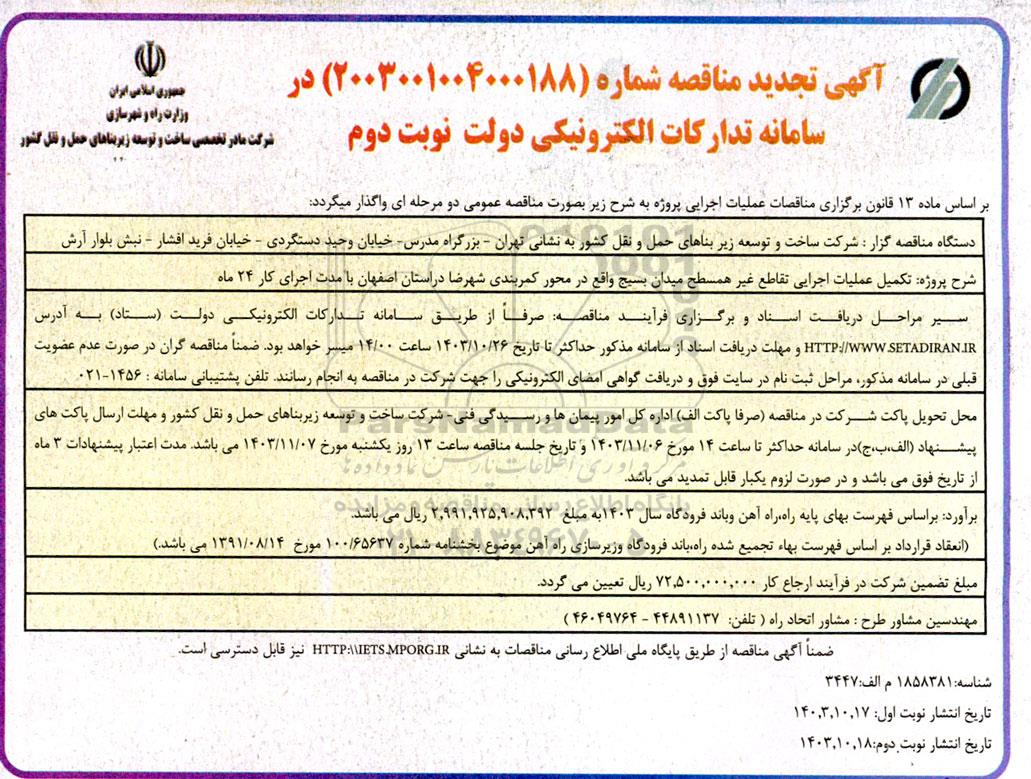 آگهی تجدید مناقصه شماره (۲۰۰۳۰۰۱۰۰۴۰۰۰۱۸۸) در
سامانه تدارکات الکترونیکی دولت نوبت دوم
جمهوری اسلامی ایران
وزارت راه و شهرسازی
شرکت مادر تخصصی ساخت و توسعه زیربناهای حمل و نقل کشور
بر اساس ماده ۱۳ قانون برگزاری مناقصات عملیات اجرایی پروژه به شرح زیر بصورت مناقصه عمومی دو مرحله ای واگذار میگردد:
دستگاه مناقصه گزار : شرکت ساخت و توسعه زیر بناهای حمل و نقل کشور به نشانی تهران - بزرگراه مدرس- خیابان وحید دستگردی - خیابان فرید افشار - نبش بلوار آرش
شرح پروژه: تکمیل عملیات اجرایی تقاطع غیر همسطح میدان بسیج واقع در محور کمربندی شهرضا دراستان اصفهان با مدت اجرای کار ۲۴ ماه
سیر مراحل دریافت اسناد و برگزاری فرآیند مناقصه: صرفاً از طریق سامانه تدارکات الکترونیکی دولت (ستاد) به آدرس
HTTP://WWW.SETADIRAN.IR و مهلت دریافت اسناد از سامانه مذکور حداکثر تا تاریخ ۱۴۰۳/۱۰/۲۶ ساعت ۱۴/۰۰ میسر خواهد بود. ضمناً مناقصه گران در صورت عدم عضویت
قبلی در سامانه مذکور، مراحل ثبت نام در سایت فوق و دریافت گواهی امضای الکترونیکی را جهت شرکت در مناقصه به انجام رسانند. تلفن پشتیبانی سامانه : ۱۴۵۶-۰۲۱
محل تحویل پاکت شرکت در مناقصه (صرفا پاکت الف) اداره کل امور پیمان ها و رسیدگی فنی- شرکت ساخت و توسعه زیربناهای حمل و نقل کشور و مهلت ارسال پاکت های
پیشنهاد (الف،ب،ج)در سامانه حداکثر تا ساعت ۱۴ مورخ ۱۴۰۳/۱۱/۰۶ و تاریخ جلسه مناقصه ساعت ۱۳ روز یکشنبه مورخ ۱۴۰۳/۱۱/۰۷ می باشد. مدت اعتبار پیشنهادات ۳ ماه
از تاریخ فوق می باشد و در صورت لزوم یکبار قابل تمدید می باشد.
برآورد: براساس فهرست بهای پایه راه،راه آهن وباند فرودگاه سال ۱۴۰۳به مبلغ ۲,۹۹۱,۹۲۵,۹۰۸,۳۹۲ ریال می باشد.
(انعقاد قرارداد بر اساس فهرست بهاء تجمیع شده راه،باند فرودگاه وزیرسازی راه آهن موضوع بخشنامه شماره ۱۰۰/۶۵۶۳۷ مورخ ۱۳۹۱/۰۸/۱۴ می باشد.)
مبلغ تضمین شرکت در فرآیند ارجاع کار ۷۲,۵۰۰,۰۰۰,۰۰۰ ریال تعیین می گردد.
مهندسین مشاور طرح : مشاور اتحاد راه ( تلفن: ۴۴۸۹۱۱۳۷ - ۴۶۰۴۹۷۶۴ )
ضمناً آگهی مناقصه از طریق پایگاه ملی اطلاع رسانی مناقصات به نشانی HTTP:\\IETS.MPORG.IR نیز قابل دسترسی است.
شناسه:۱۸۵۸۳۸۱ م الف:۳۴۴۷
تاریخ انتشار نوبت اول: ۱۴۰,۳,۱۰,۱۷
تاریخ انتشار نوبت دوم:۱۴۰۳,۱۰,۱۸
ParsNamadData
پایگاه اطلاع رسانی مناقصه و مزایده